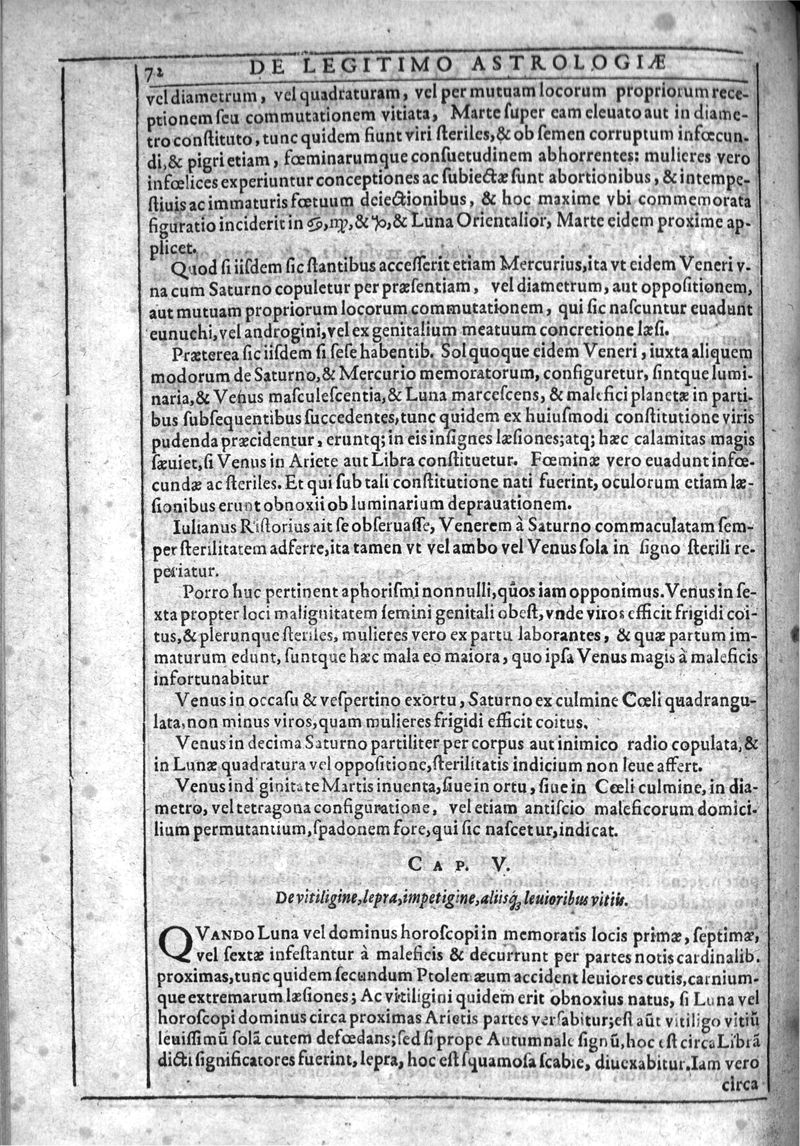 72 DE LEGITIMO ASTROLOGIÆ
vel diametrum, vel quadraturam, vel per mutuam locorum propriorum rece-
ptionem ſeu commutationem vitiata, Marte ſuper eam eleuato aut in diame-
tro conſtituto, tunc quidem fiunt viri ſteriles, & ob ſemen corruptum infœcun-
di, & pigri etiam, fœminarumque conſuetudinem abhorrentes: mulieres vero
infœlices experiuntur conceptiones ac ſubiectæ ſunt abortionibus, & intempe-
ſtiuis ac immaturis fœtuum deiectionibus, & hoc maxime vbi commemorata
figuratio inciderit in ♋, ♍, & ♑, & Luna Orientalior, Marte eidem proxime ap-
plicet.
Quod ſi iiſdem ſic ſtantibus acceſſerit etiam Mercurius, ita vt eidem Veneri v-
na cum Saturno copuletur per præſentiam, vel diametrum, aut oppoſitionem,
aut mutuam propriorum locorum commutationem, qui ſic naſcuntur euadunt
eunuchi, vel androgini, vel ex genitalium meatuum concretione læſi.
Præterea ſic iiſdem ſi ſeſe habentib. Sol quoque eidem Veneri, iuxta aliquem
modorum de Saturno, & Mercurio memoratorum, configuretur, ſintque lumi-
naria, & Venus maſculeſcentia, & Luna marceſcens, & malefici planetæ in parti-
bus ſubſequentibus ſuccedentes, tunc quidem ex huiuſmodi conſtitutione viris
pudenda præcidentur, eruntq; in eis inſignes læſiones; atq; hæc calamitas magis
ſæuiet, ſi Venus in Ariete aut Libra conſtituetur. Fœminæ vero euadunt infœ-
cundæ ac ſteriles. Et qui ſub tali conſtitutione nati fuerint, oculorum etiam læ-
ſionibus erunt obnoxii ob luminarium deprauationem.
Iulianus Riſtorius ait ſe obſeruaſſe, Venerem à Saturno commaculatam ſem-
per ſterilitatem adferre, ita tamen vt vel ambo vel Venus ſola in ſigno ſterili re-
periatur.
Porro huc pertinent aphoriſmi nonnulli, quos iam opponimus. Venus in ſe-
xta propter loci malignitatem ſemini genitali obeſt, vnde viros efficit frigidi coi-
tus, & plerunque ſteriles, mulieres vero ex partu laborantes, & quæ partum im-
maturum edunt, ſuntque hæc mala eo maiora, quo ipſa Venus magis à maleficis
infortunabitur
Venus in occaſu & veſpertino exortu, Saturno ex culmine Cœli quadrangu-
lata, non minus viros, quam mulieres frigidi efficit coitus.
Venus in decima Saturno partiliter per corpus aut inimico radio copulata, &
in Lunæ quadratura vel oppoſitione, ſterilitatis indicium non leue affert.
Venus in dignitate Martis inuenta, ſiue in ortu, ſiue in Cœli culmine, in dia-
metro, vel tetragona configuratione, vel etiam antiſcio maleficorum domici-
lium permutantium, ſpadonem fore, qui ſic naſcetur, indicat.
CAP. V.
De vitiligine, lepra, impetigine, aliiſq; leuioribus vitiis.
QVANDO Luna vel dominus horoſcopi in memoratis locis primæ, ſeptimæ,
vel ſextæ infeſtantur à maleficis & decurrunt per partes notis cardinalib.
proximas, tunc quidem ſecundum Ptolemæum accident leuiores cutis, carnium-
que extremarum læſiones; Ac vitiligini quidem erit obnoxius natus, ſi Luna vel
horoſcopi dominus circa proximas Arietis partes verſabitur; eſt aūt vitiligo vitiū
leuiſſimū ſolā cutem defœdans; ſed ſi prope Autumnale ſignū, hoc eſt circa Librā
dicti ſignificatores fuerint, lepra, hoc eſt ſquamoſa ſcabie, diuexabitur. Iam vero
circa